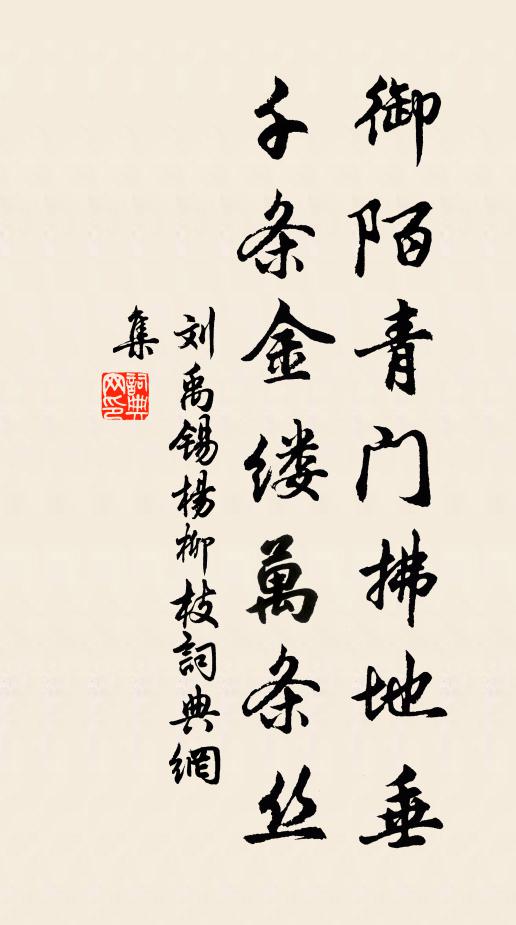 御陌青门拂地垂
千条金缕萬条丝
刘禹锡楊柳枝詞典網
集
詞典
网印